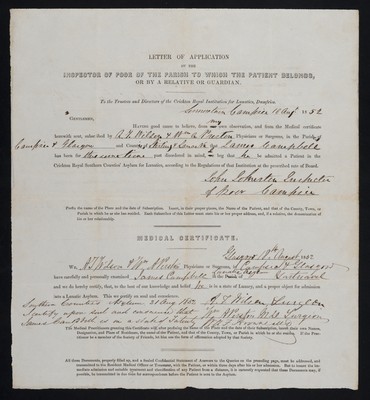 LETTER OF APPLICATION
OF THE
INSPECTOR OF POOR OF THE PARISH TO WHICH THE PATIENT BELONGS,
OR BY A RELATIVE OR GUARDIAN.
To the Trustees and Directors of the Crichton Royal Institution for Lunatics, Dumfries.
Campsie 18 Augt 1852
GENTLEMEN,
Having good cause to believe, from my own observation, and from the Medical certificate
herewith sent, subscribed by A. T. Wilson & Wm A. Preston Physicians or Surgeons, in the Parish of
Campsie & Glasgow and County of Stirling & Lanark that James Campbell
has been for some time past disordered in mind, I beg that he be admitted a Patient in the
Crichton Royal Southern Counties' Asylum for Lunatics, according to the Regulations of that Institution at the prescribed rate of Board.
John Johnston Inspector
of Poor Campsie
Prefix the name of the Place and the date of Subscription. Insert, in their proper places, the Name of the Patient, and that of the County, Town, or
Parish to which he or she has resided. Each Subscriber of this Letter must state his or her proper address, and, if a relative, the denomination of
his or her relationship.
MEDICAL CERTIFICATE.
Glasgow 18th August 1852
We A. T. Wilson & Wm A. Preston Physicians or Surgeons, of Campsie & Glasgow
have carefully and personally examined James Campbell in the Parish of
and we do hereby certify, that, to the best of our knowledge and belief he is in a state of Lunacy, and a proper object for admission
into a Lunatic Asylum. This we certify on soul and conscience.
Southern Counties Asylum 21 Aug 1852 A. T. Wilson Surgeon
I certify upon soul and conscience that Wm A Preston M.D. Surgeon
James Campbell is in a state of Fatuity
The Medical Practitioners granting this Certificate will after prefixing the name of the Place and date of Subscription, insert their own Names,
Designation, and Place of Residence, the name of the Patient, and that of the County, Town, or Parish in which he or she resides. If the Practitioner
be a member of the Society of Friends, let him use the form of affirmation adopted by that Society.
All these Documents, properly filled up, and a Sealed Confidential Statement of Answers to the Queries on the preceding page, must be addressed, and
transmitted to the Resident Medical Officer or Treasurer, with the Patient, or within three days after his or her admission. But to insure the immediate
admission and suitable treatment and classification of any Patient from a distance, it is earnestly requested that these Documents may, if
possible, be transmitted in due time for correspondence before the Patient is sent to the Asylum.